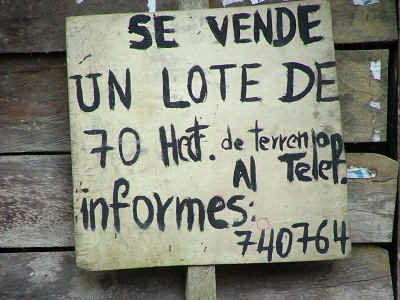 SE VENDE
UN LOTE DE
70 Hect. de terreno
Al Telef.
informes:
740764